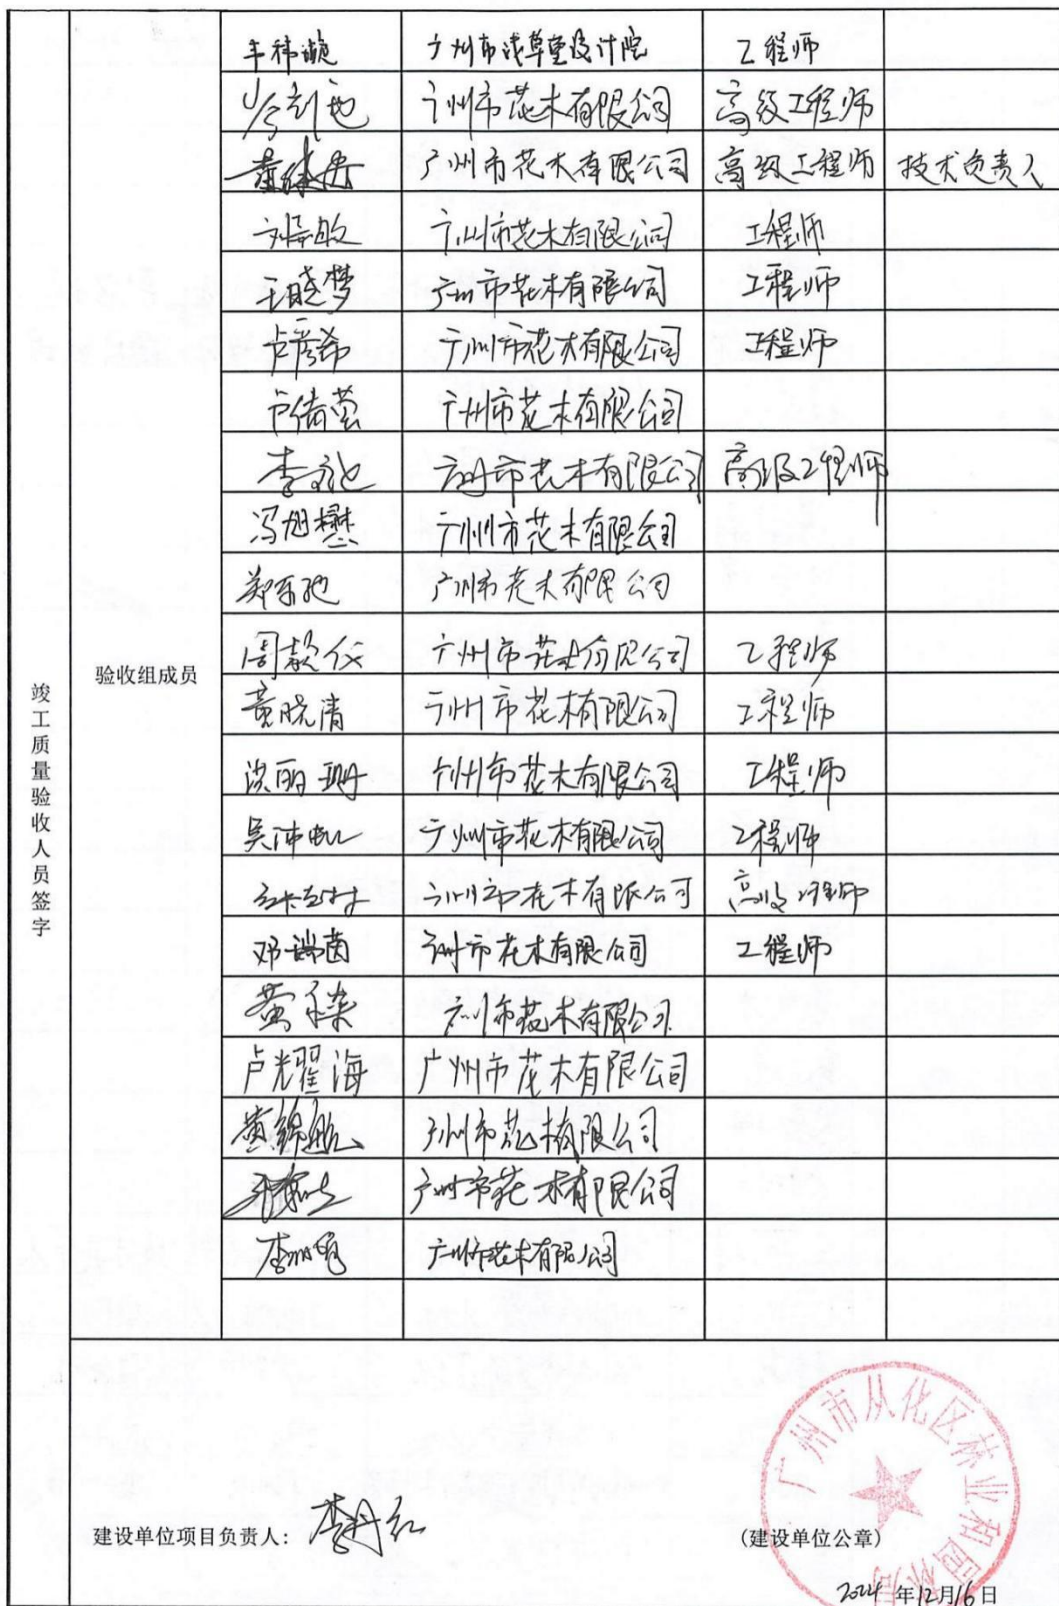 竣工质量验收人员签字
验收组成员
广州市浅草堂设计院 工程师
广州市花木有限公司 高级工程师
广州市花木有限公司 高级工程师 技术负责人
广州市花木有限公司 工程师
王晓梦 广州市花木有限公司 工程师
卢彦希 广州市花木有限公司 工程师
卢倩莹 广州市花木有限公司
广州市花木有限公司 高级工程师
冯旭懋 广州市花木有限公司
广州市花木有限公司
周款仪 广州市花木有限公司 工程师
黄晓清 广州市花木有限公司 工程师
广州市花木有限公司 工程师
吴沛 广州市花木有限公司 工程师
广州市花木有限公司 高级工程师
邓瑞茵 广州市花木有限公司 工程师
黄 广州市花木有限公司
卢光耀海 广州市花木有限公司
黄锦航 广州市花木有限公司
广州市花木有限公司
广州市花木有限公司
建设单位项目负责人：李丹红
(建设单位公章)
广州市从化区林业和园林局
2024 年12月16日